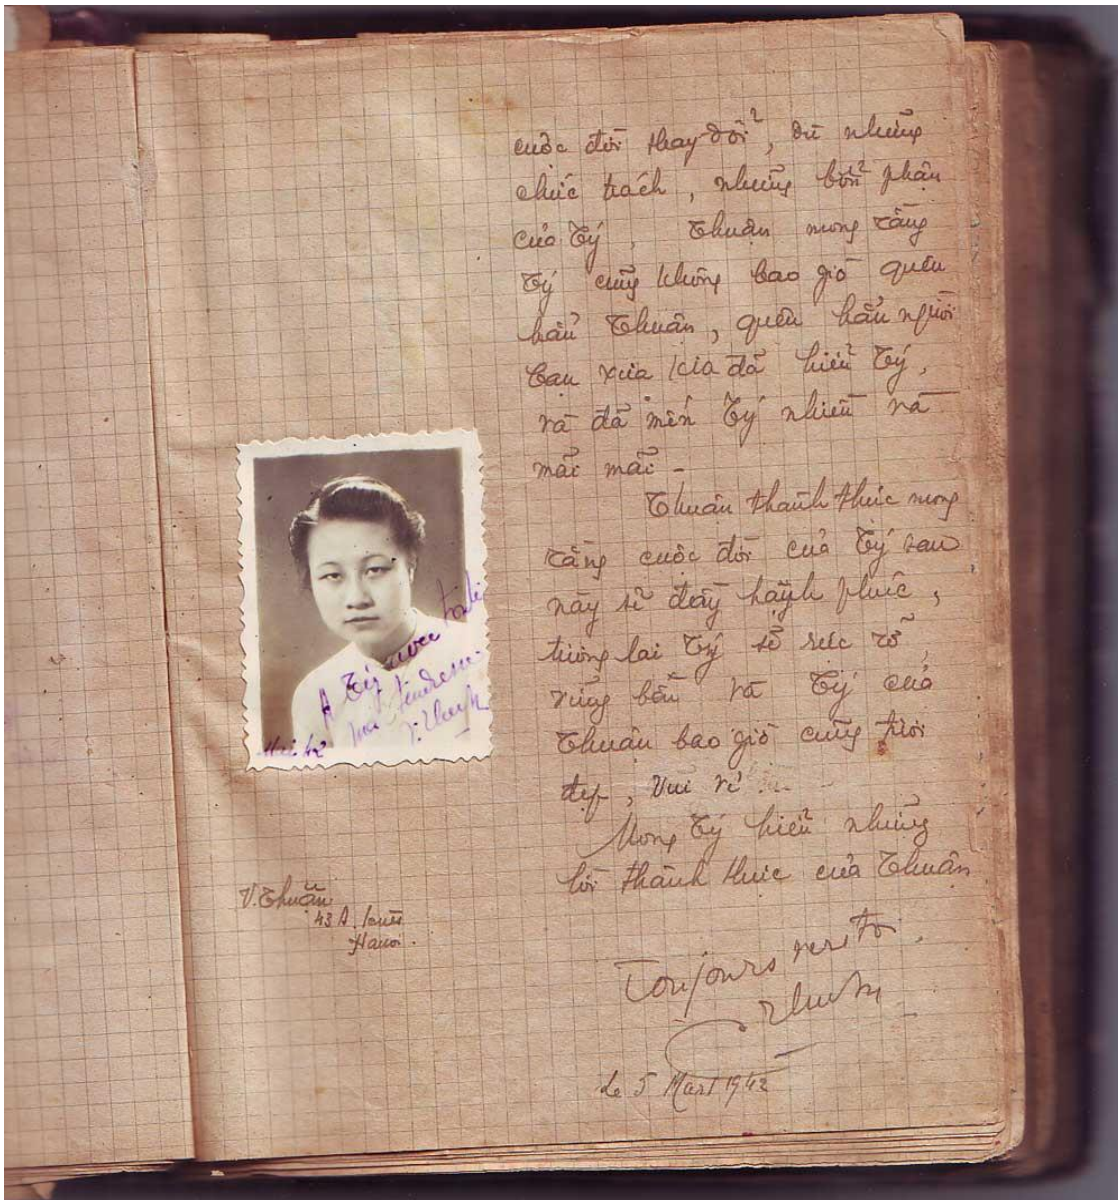 cuộc đời thay đổi, dù những
chức trách, những bổn phận
của Tý, Thuận mong rằng
Tý cũng không bao giờ quên
hẳn Thuận, quên hẳn người
bạn xưa kia đã hiểu Tý,
và đã mến Tý nhiều và
mãi mãi -
Thuận thành thực mong
rằng cuộc đời của Tý sau
này sẽ đầy hạnh phúc,
tương lai Tý sẽ rực rỡ,
vững bền và Tý của
Thuận bao giờ cũng tươi
đẹp, vui vẻ
Mong Tý hiểu những
lời thành thực của Thuận
Toujours vers toi.
Thuận
Le 5 Mars 1942
A Tý avec toute
ma tendresse
V. Thuận
V. Thuận
43 A.
Hanoi.